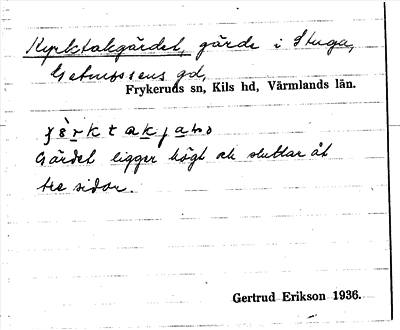 Kyrktakgärdet, gärde i Stuga,
gd,
Frykeruds sn, Kils hd, Värmlands län.
Gärdet ligger högt och sluttar åt
tre sidor.
Gertrud Erikson 1936.